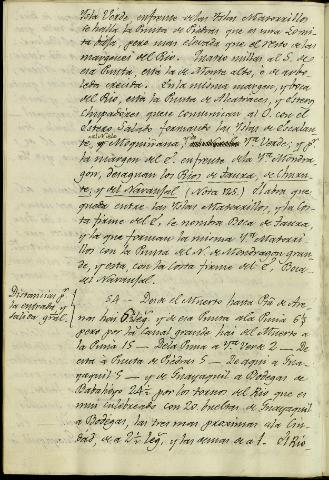 Isla Verde, enfrente de las Islas Matorrillos
se halla la Punta de Piedras que es una Lomi-
ta baja, pero mas elevada que el resto de las
margenes del Rio. Quatro millas al S. de
esa Punta, está la de Monte alto, ó de arbo-
leda. En la misma margen, y boca
del Rio, está la Punta de Alcatraces, y esteros
que se comunican al O. con el
Estero Salado formando las Islas de Escalan-
te, y Moquiñana, Ysª Verde; y pr.
la margen del E. enfrente de la Ysª Mondra-
gon, desaguan los Rios de Taura,
te, y del Naranjal (Nota 125.) El abra que
queda entre las Islas Matorrillos, y la Cos-
ta firme del E. se nombra Boca de Taura,
y la que forman la misma Ysª Matorri-
llos con la Punta del N. de Mondragon gran-
de, y esta, con la Costa firme del E. Boca
del Naranjal.
Distancias pr.
la entrada y
salida gral.
54 – Desde el Muerto hasta Pta. de Are-
nas hai 6 leg. y de esa Punta a la Puná 6½
pero por la Canal grande hai del Muerto a
la Puná 15 – De la Puna a Ysª Verde 2 – De
esta á Punta de Piedras 5 – De aqui a Gua-
yaquil 5 – y de Guayaquil a Bodegas de
Babahoyo 24½ por los tornos del Rio que es
mui culebreado con 20 bueltas de Guayaquil
a Bodegas, las tres mas proximas a la Ciu-
dad, de a 2½ leg., y las demas de a 1. El Rio